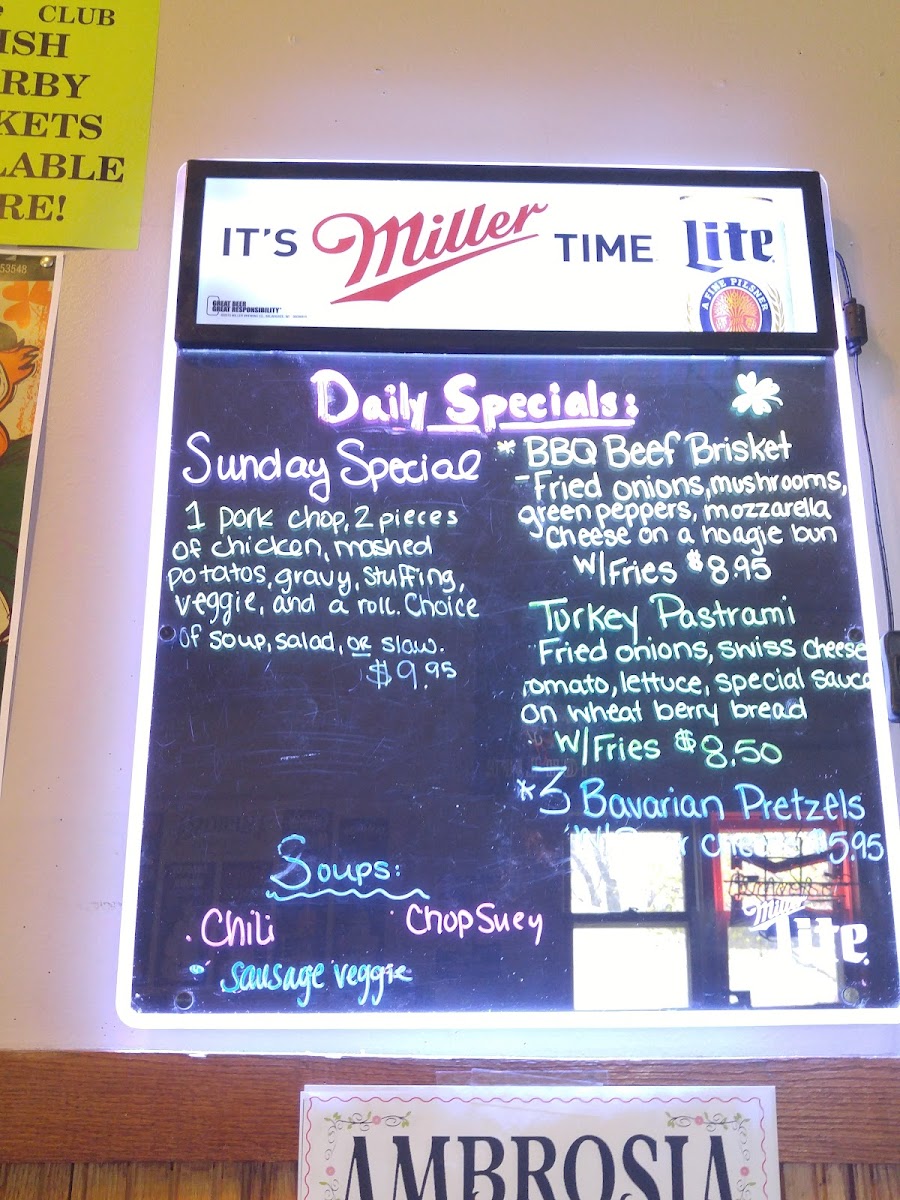 CLUB
ISH
RBY
KETS
LABLE
RE!
53548
IT'S Miller TIME Lite
A FINE PILSNER
GREAT BEER
GREAT RESPONSIBILITY
Daily Specials:
Sunday Special
1 pork chop, 2 pieces
of chicken, mashed
potatos, gravy, stuffing,
veggie, and a roll. Choice
of soup, salad, or slaw.
$9.95
* BBQ Beef Brisket
- Fried onions, mushrooms,
green peppers, mozzarella
cheese on a hoagie bun
w/Fries $8.95
Turkey Pastrami
Fried onions, swiss cheese
tomato, lettuce, special sauce
on wheat berry bread
w/Fries $8.50
*3 Bavarian Pretzels
$5.95
Soups:
· Chili
· Chop Suey
· Sausage veggie
Miller
Lite
AMBROSIA